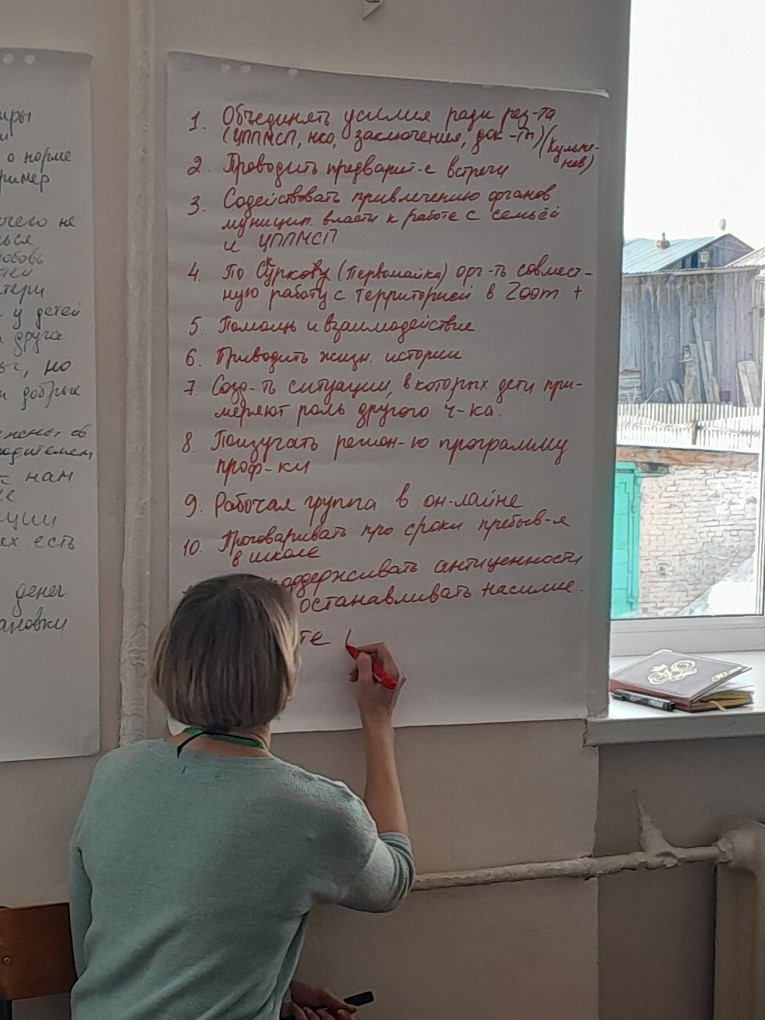 иры
о норме
ример
ючего не
ься
любовь
тей
тери
у детей
друга
но
и добрые
одителем
к нам
ие
ации
ех есть
денег
ановки
1. Объединять усилия ради рез-та
(ЦППМСП, нко, заключения, док-ты)
2. Проводить предварит-е встречи
3. Содействовать привлечению органов
муницип. власти к работе с семьёй
и ЦППМСП
4. По Суркову (Первомайка) орг-ть совмест-
ную работу с территорией в Zoom +
5. Помощь и взаимодействие
6. Приводить жизн. истории
7. Созд-ть ситуации, в которых дети при-
меряют роль другого ч-ка.
8. Поизучать регион-ю программу
проф-ки
9. Рабочая группа в он-лайне
10. Проговаривать про сроки пребыв-я
в школе
поддерживать антиценности
останавливать насилие.
те